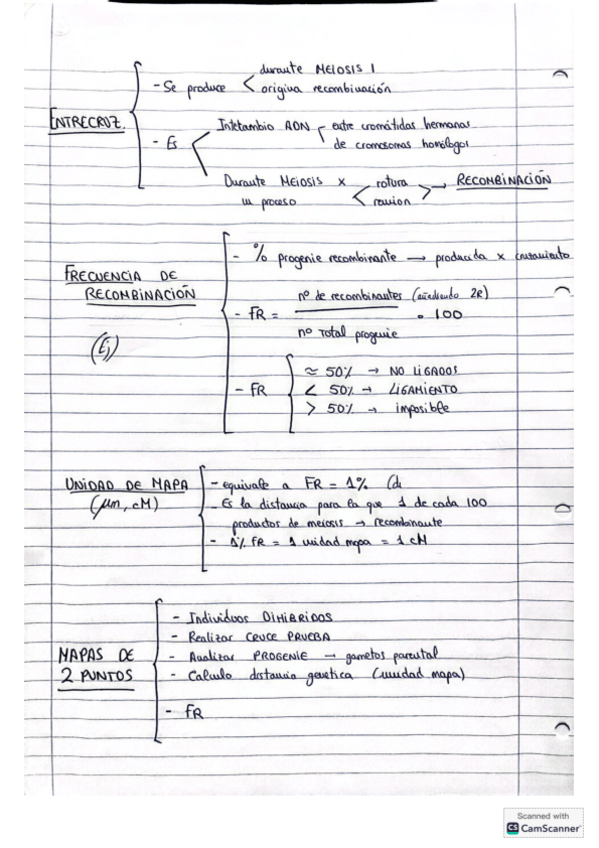 durante MEIOSIS I
- Se produce < origina recombinación
ENTRECRUZ.
- Es
Intetambio ADN - entre cromátidas hermanas
de cromosomas homólogos
Durante MEIOSIS x rotura → RECOMBINACIÓN
un proceso < reunion >
- % progenie recombinante → producida x cruzamiento
FRECUENCIA DE
RECOMBINACIÓN
(Ej)
nº de recombinantes (añadiendo 2R)
- FR = · 100
nº Total progenie
≈ 50% → NO LIGADOS
- FR < 50% → LIGAMIENTO
> 50% → imposible
UNIDAD DE MAPA
(µm, cM)
- equivale a FR = 1%
- Es la distancia para la que 1 de cada 100
productos de meiosis → recombinante
- 1% FR = 1 unidad mapa = 1 cM
MAPAS DE
2 PUNTOS
- Individuos DIHIBRIDOS
- Realizar CRUCE PRUEBA
- Analizar PROGENIE → gametos parental
- Calculo distancia genetica (unidad mapa)
- FR
Scanned with
CS CamScanner